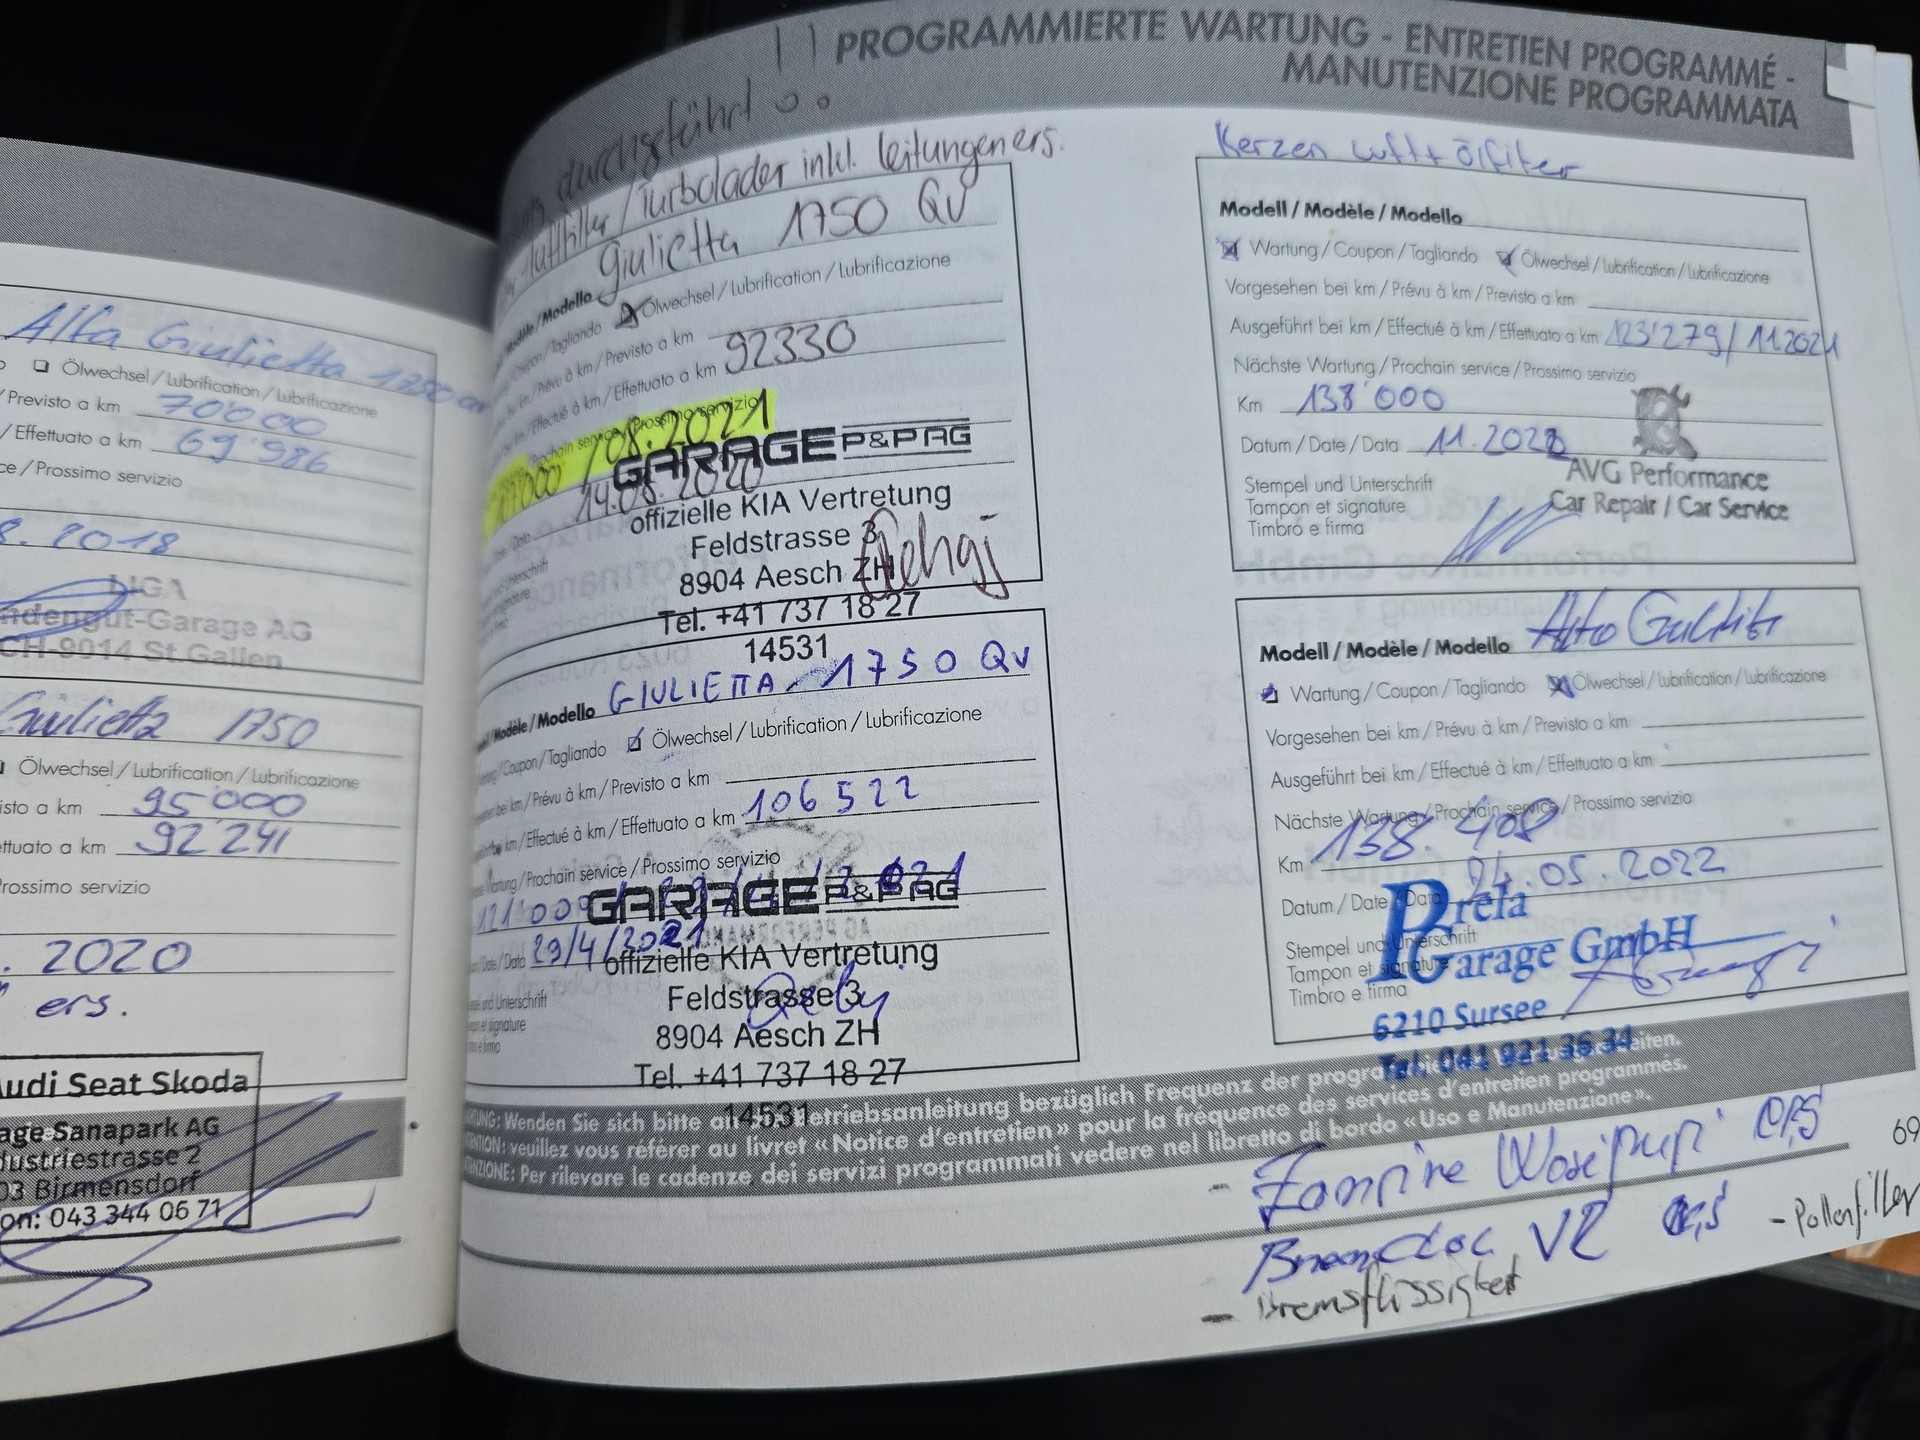 PROGRAMMIERTE WARTUNG - ENTRETIEN PROGRAMMÉ -
MANUTENZIONE PROGRAMMATA
Alfa Giulietta 1750
Ölwechsel / Lubrification / Lubrificazione
/ Previsto a km 70'000
/ Effettuato a km 69'986
ce / Prossimo servizio
8. 2018
LIGA
ndengut-Garage AG
CH-9014 St.Gallen
Giulietta 1750
Ölwechsel / Lubrification / Lubrificazione
isto a km 95'000
ttuato a km 92'241
Prossimo servizio
. 2020
ers.
udi Seat Skoda
age Sanapark AG
dustriestrasse 2
03 Birmensdorf
on: 043 344 06 71
durchgeführt
luftfilter / Turbolader inkl. leitungen ers.
Modèle / Modello Giulietta 1750 QV
Coupon / Tagliando Ölwechsel / Lubrification / Lubrificazione
km / Prévu à km / Previsto a km
km / Effectué à km / Effettuato a km 92330
Prochain service / Prossimo servizio
/ 08.2021
14.08.2020
GARAGE P&P AG
offizielle KIA Vertretung
Feldstrasse 3
8904 Aesch ZH
Tel. +41 737 18 27
14531
Modèle / Modello GIULIETTA - 1750 QV
Coupon / Tagliando Ölwechsel / Lubrification / Lubrificazione
bei km / Prévu à km / Previsto a km
km / Effectué à km / Effettuato a km 106522
Wartung / Prochain service / Prossimo servizio
121'000
/ Date / Data 29/4/2021
GARAGE P&P AG
offizielle KIA Vertretung
Feldstrasse 3
8904 Aesch ZH
Tel. +41 737 18 27
14531
und Unterschrift
et signature
e firma
Kerzen Luft + Ölfilter
Modell / Modèle / Modello
Wartung / Coupon / Tagliando Ölwechsel / Lubrification / Lubrificazione
Vorgesehen bei km / Prévu à km / Previsto a km
Ausgeführt bei km / Effectué à km / Effettuato a km 123'279 / 11.2021
Nächste Wartung / Prochain service / Prossimo servizio
Km 138'000
Datum / Date / Data 11.2022
Stempel und Unterschrift
Tampon et signature
Timbro e firma
AVG Performance
Car Repair / Car Service
Modell / Modèle / Modello
Wartung / Coupon / Tagliando Ölwechsel / Lubrification / Lubrificazione
Vorgesehen bei km / Prévu à km / Previsto a km
Ausgeführt bei km / Effectué à km / Effettuato a km
Nächste Wartung / Prochain service / Prossimo servizio
Km 138.408
Datum / Date / Data 24.05.2022
Stempel und Unterschrift
Tampon et signature
Timbro e firma
Prela
Garage GmbH
6210 Sursee
Tel. 041 921 36 34
ACHTUNG: Wenden Sie sich bitte an Betriebsanleitung bezüglich Frequenz der
ATTENTION: veuillez vous référer au livret « Notice d'entretien » pour la fréquence des services d'entretien programmés.
ATTENZIONE: Per rilevare le cadenze dei servizi programmati vedere nel libretto di bordo « Uso e Manutenzione ».
69
- Pollenfilter
- Bremsflüssigkeit